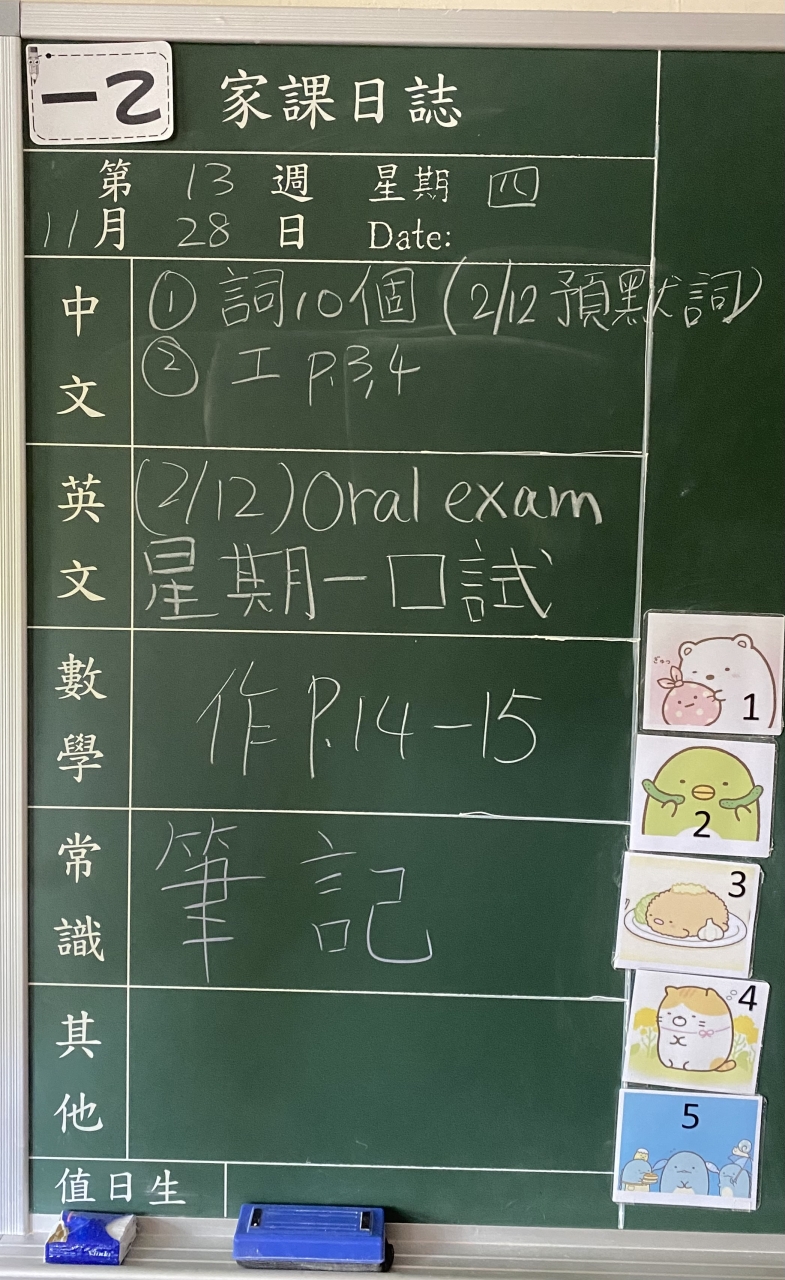 一乙
家課日誌
第 13 週 星期 四
11月 28 日 Date:
中文
① 詞10個 (2/12 預默詞)
② 工 P.3,4
英文
(2/12) Oral exam
星期一口試
數學
作 P.14-15
常識
筆記
其他
值日生
1
2
3
4
5